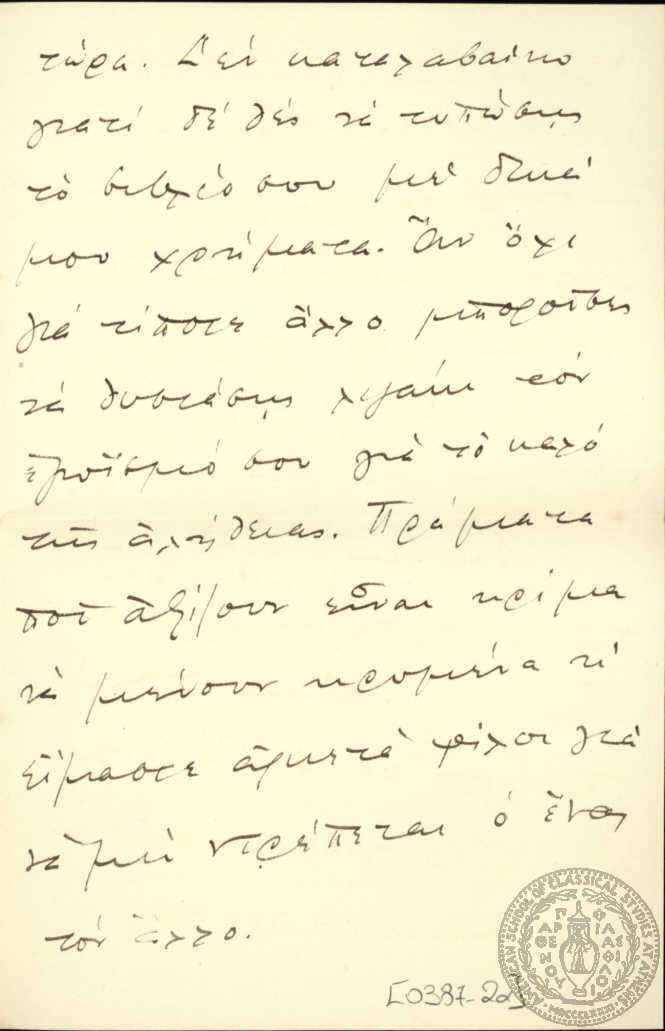 τώρα. Δεν καταλαβαίνω
γιατί δε θες νά τυπώσης
τό βιβλίο σου με δικά
μου χρήματα. Ἄν ὄχι
γιά τίποτε ἄλλο μποροῦσες
νά θυσιάσης λιγάκι τόν
ἐγωϊσμό σου γιά τό καλό
τῆς ἀλήθειας. Πράματα
ποῦ ἀξίζουν εἶναι κρίμα
νά μένουν κρυμένα κί
εἴμαστε ἀρκετά φίλοι γιά
νά μή ντρέπεται ὁ ἕνας
τόν ἄλλο.
AMERICAN SCHOOL OF CLASSICAL STUDIES AT ATHENS
ΠΑΡΘΕΝΟΥ ΦΙΛΑΣ ΦΙΛΟΙ
MDCCCLXXXI